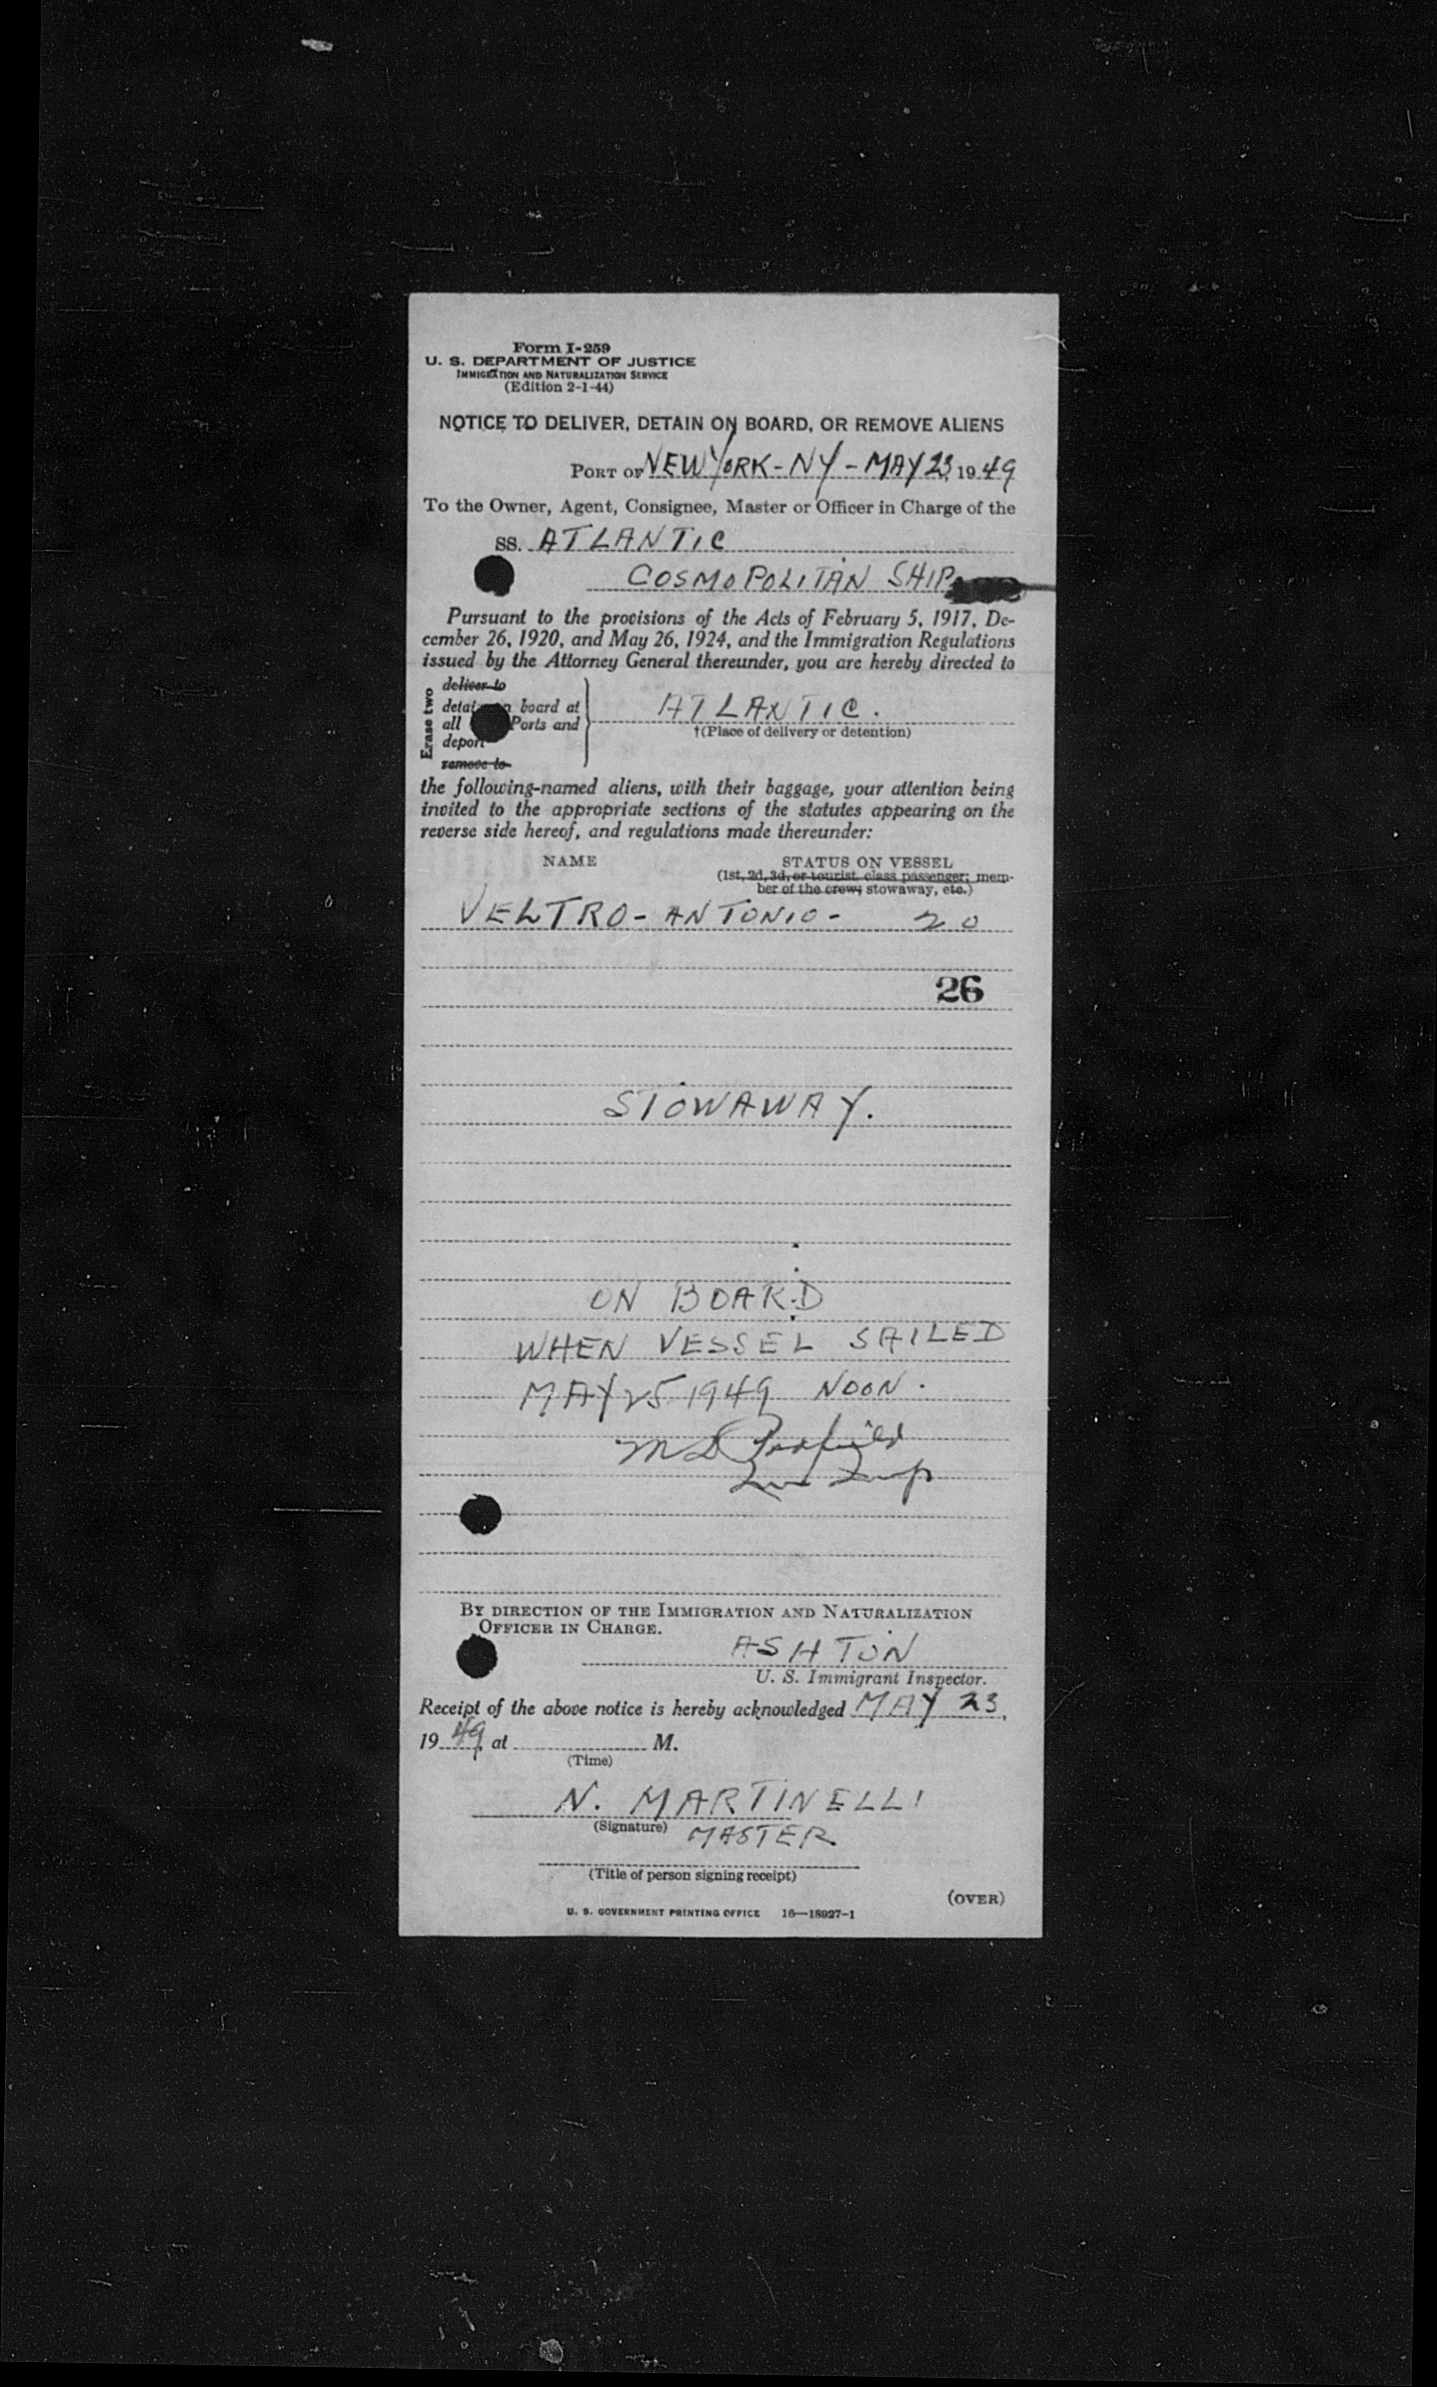 Form I-259
U. S. DEPARTMENT OF JUSTICE
IMMIGRATION AND NATURALIZATION SERVICE
(Edition 2-1-44)
NOTICE TO DELIVER, DETAIN ON BOARD, OR REMOVE ALIENS
PORT OF NEW YORK - NY - MAY 23, 1949
To the Owner, Agent, Consignee, Master or Officer in Charge of the
SS. ATLANTIC
COSMOPOLITAN SHIP
Pursuant to the provisions of the Acts of February 5, 1917, De-
cember 26, 1920, and May 26, 1924, and the Immigration Regulations
issued by the Attorney General thereunder, you are hereby directed to
Erase two
deliver to
detain on board at
all Ports and
deport
remove to
ATLANTIC.
†(Place of delivery or detention)
the following-named aliens, with their baggage, your attention being
invited to the appropriate sections of the statutes appearing on the
reverse side hereof, and regulations made thereunder:
NAME STATUS ON VESSEL
(1st, 2d, 3d, or tourist, class passenger; mem-
ber of the crew; stowaway, etc.)
VELTRO - ANTONIO - 20
26
STOWAWAY.
ON BOARD
WHEN VESSEL SAILED
MAY 25 1949 NOON.
M D
BY DIRECTION OF THE IMMIGRATION AND NATURALIZATION
OFFICER IN CHARGE.
ASHTON
U. S. Immigrant Inspector.
Receipt of the above notice is hereby acknowledged MAY 23,
1949, at M.
(Time)
N. MARTINELLI
(Signature) MASTER
(Title of person signing receipt)
(OVER)
U. S. GOVERNMENT PRINTING OFFICE 16—18927-1